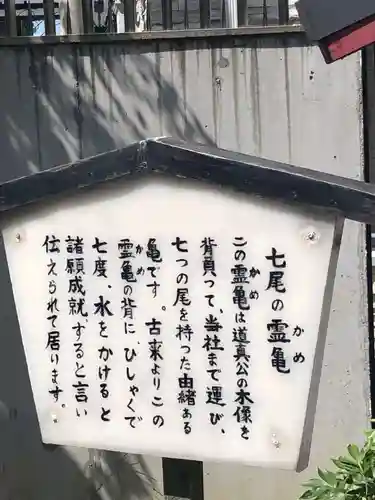 七尾の霊亀
かめ
この霊亀は道真公の木像を
かめ
背負って、当社まで運び、
七つの尾を持った由緒ある
亀です。古来よりこの
かめ
霊亀の背に、ひしゃくで
かめ
七度、水をかけると
諸願成就すると言い
伝えられて居います。